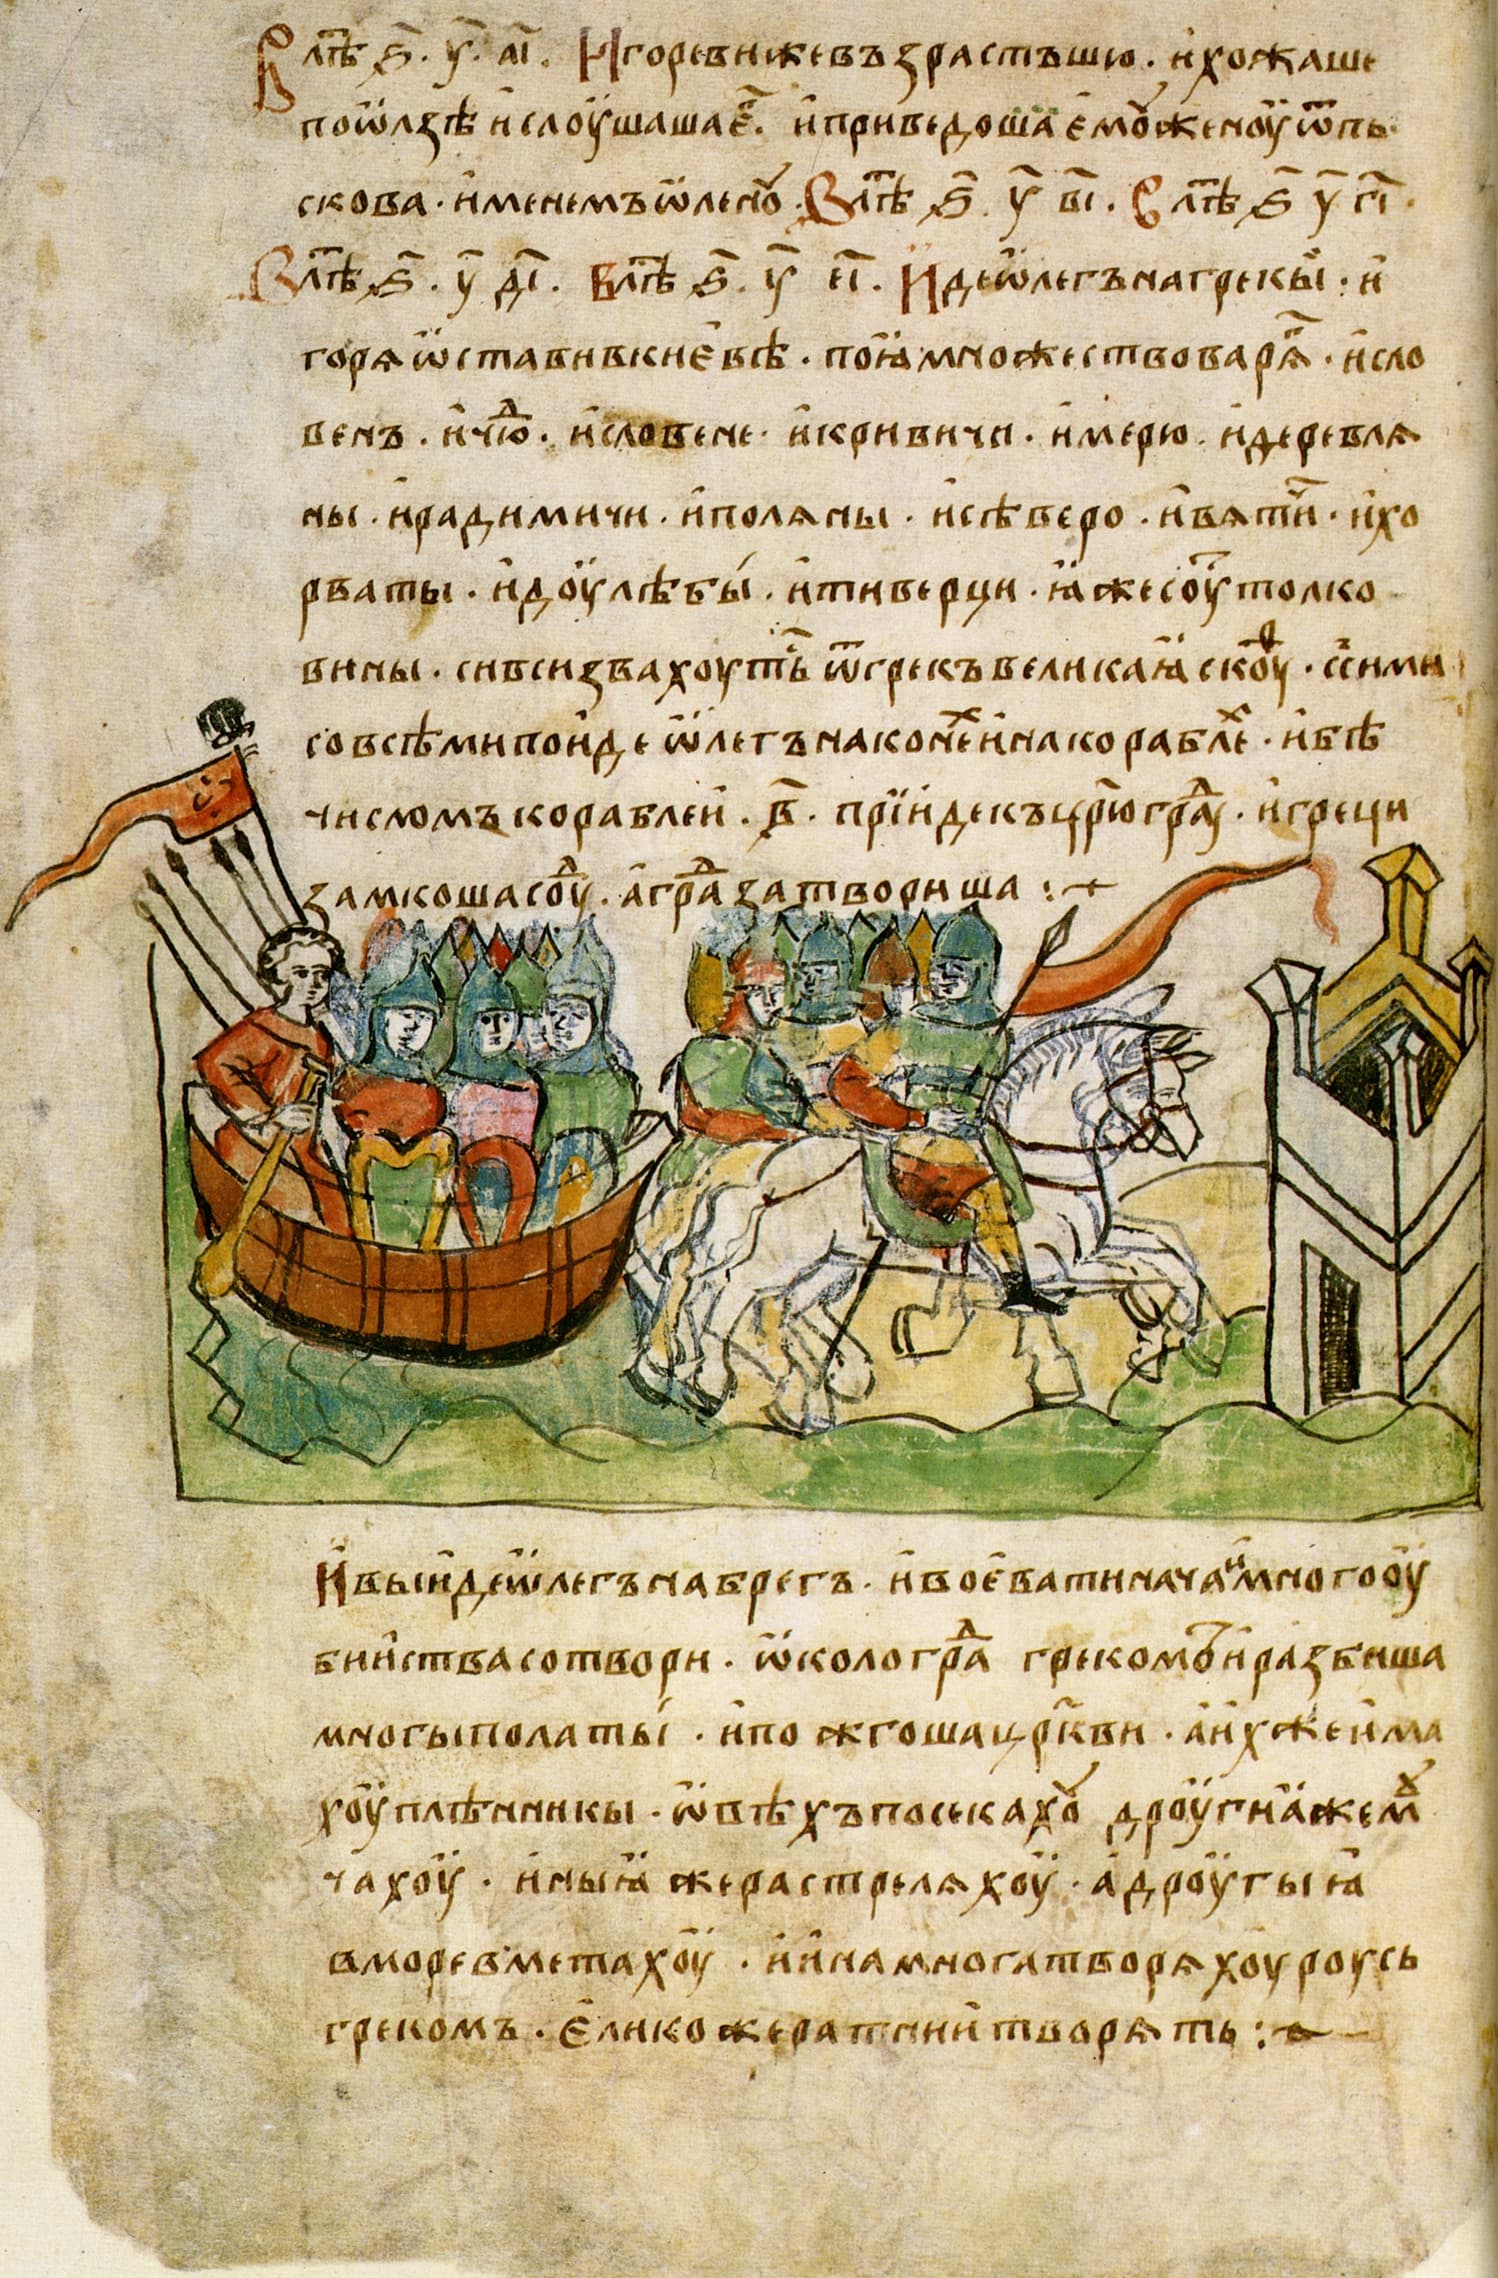 В лⷮѣ ҂ѕ҃. у҃. а҃і. Игоревижевъзрастъшю. и҆хожаше
поѡ҆лзѣ и҆слоӱшашаего҃. и҆приведоша е҆моу̀женоӱ ѿпь
скова. и҆менемъѡ҆леноу̀. В лⷮѣ ҂ѕ҃. у҃ в҃і. В лⷮѣ ҂ѕ҃ у҃ г҃і.
В лⷮѣ ҂ѕ҃. у҃ д҃і. В лⷮѣ ҂ѕ҃. у҃ е҃і. Идеѡ҆легънагрекӹ. и҆
горяѡ҆ставивкие҆вѣ. поꙗ҆множествоварѧ҃. и҆сло
венъ. и҆чюⷣ. и҆словене. и҆кривичи. и҆мерю. и҆деревлѧ
ны. и҆радимичи. и҆полѧны. и҆сѣверо. и҆вѧти҃. и҆хо
рваты. и҆доӱлѣбы́. и҆тиверци. ꙗ҆жесоу҃толко
вины. сивсизвахоуть҃ ѿгрекъвеликаꙗ҆скоуⷴ. ссими
совсѣмипои҆де ѡ҆легънаконеⷯи҆накораблеⷯ. и҆бѣ
числомъкораблеи҆. ҂в҃. прїи҆декъцр҃юграⷣу. и҆греци
замкошасоуⷣ. а҆граⷣзатвориша :⁓
И҆выи҆деѡ҆легънабрегъ. и҆вое҆ватинача и҆многооӱ
бии҆ствасотвори. ѡ҆колограⷣ грекомъ и҆разбиша
многыполаты́. и҆пожгошацр҃кви. а҆и҆хжеи҆ма
хоӱплѣнникы. ѡ҆вѣхъпосекахоу̀ дроӱгиꙗ҆жемоу̀
чахоӱ. и҆ныꙗ҆ жерастрелѧхоӱ. а҆дроӱгыꙗ҆
вморевметахоӱ. и҆и҆намногатворѧхоуроусь
грекомъ. е҆ликожератнии҆творѧть :⁓